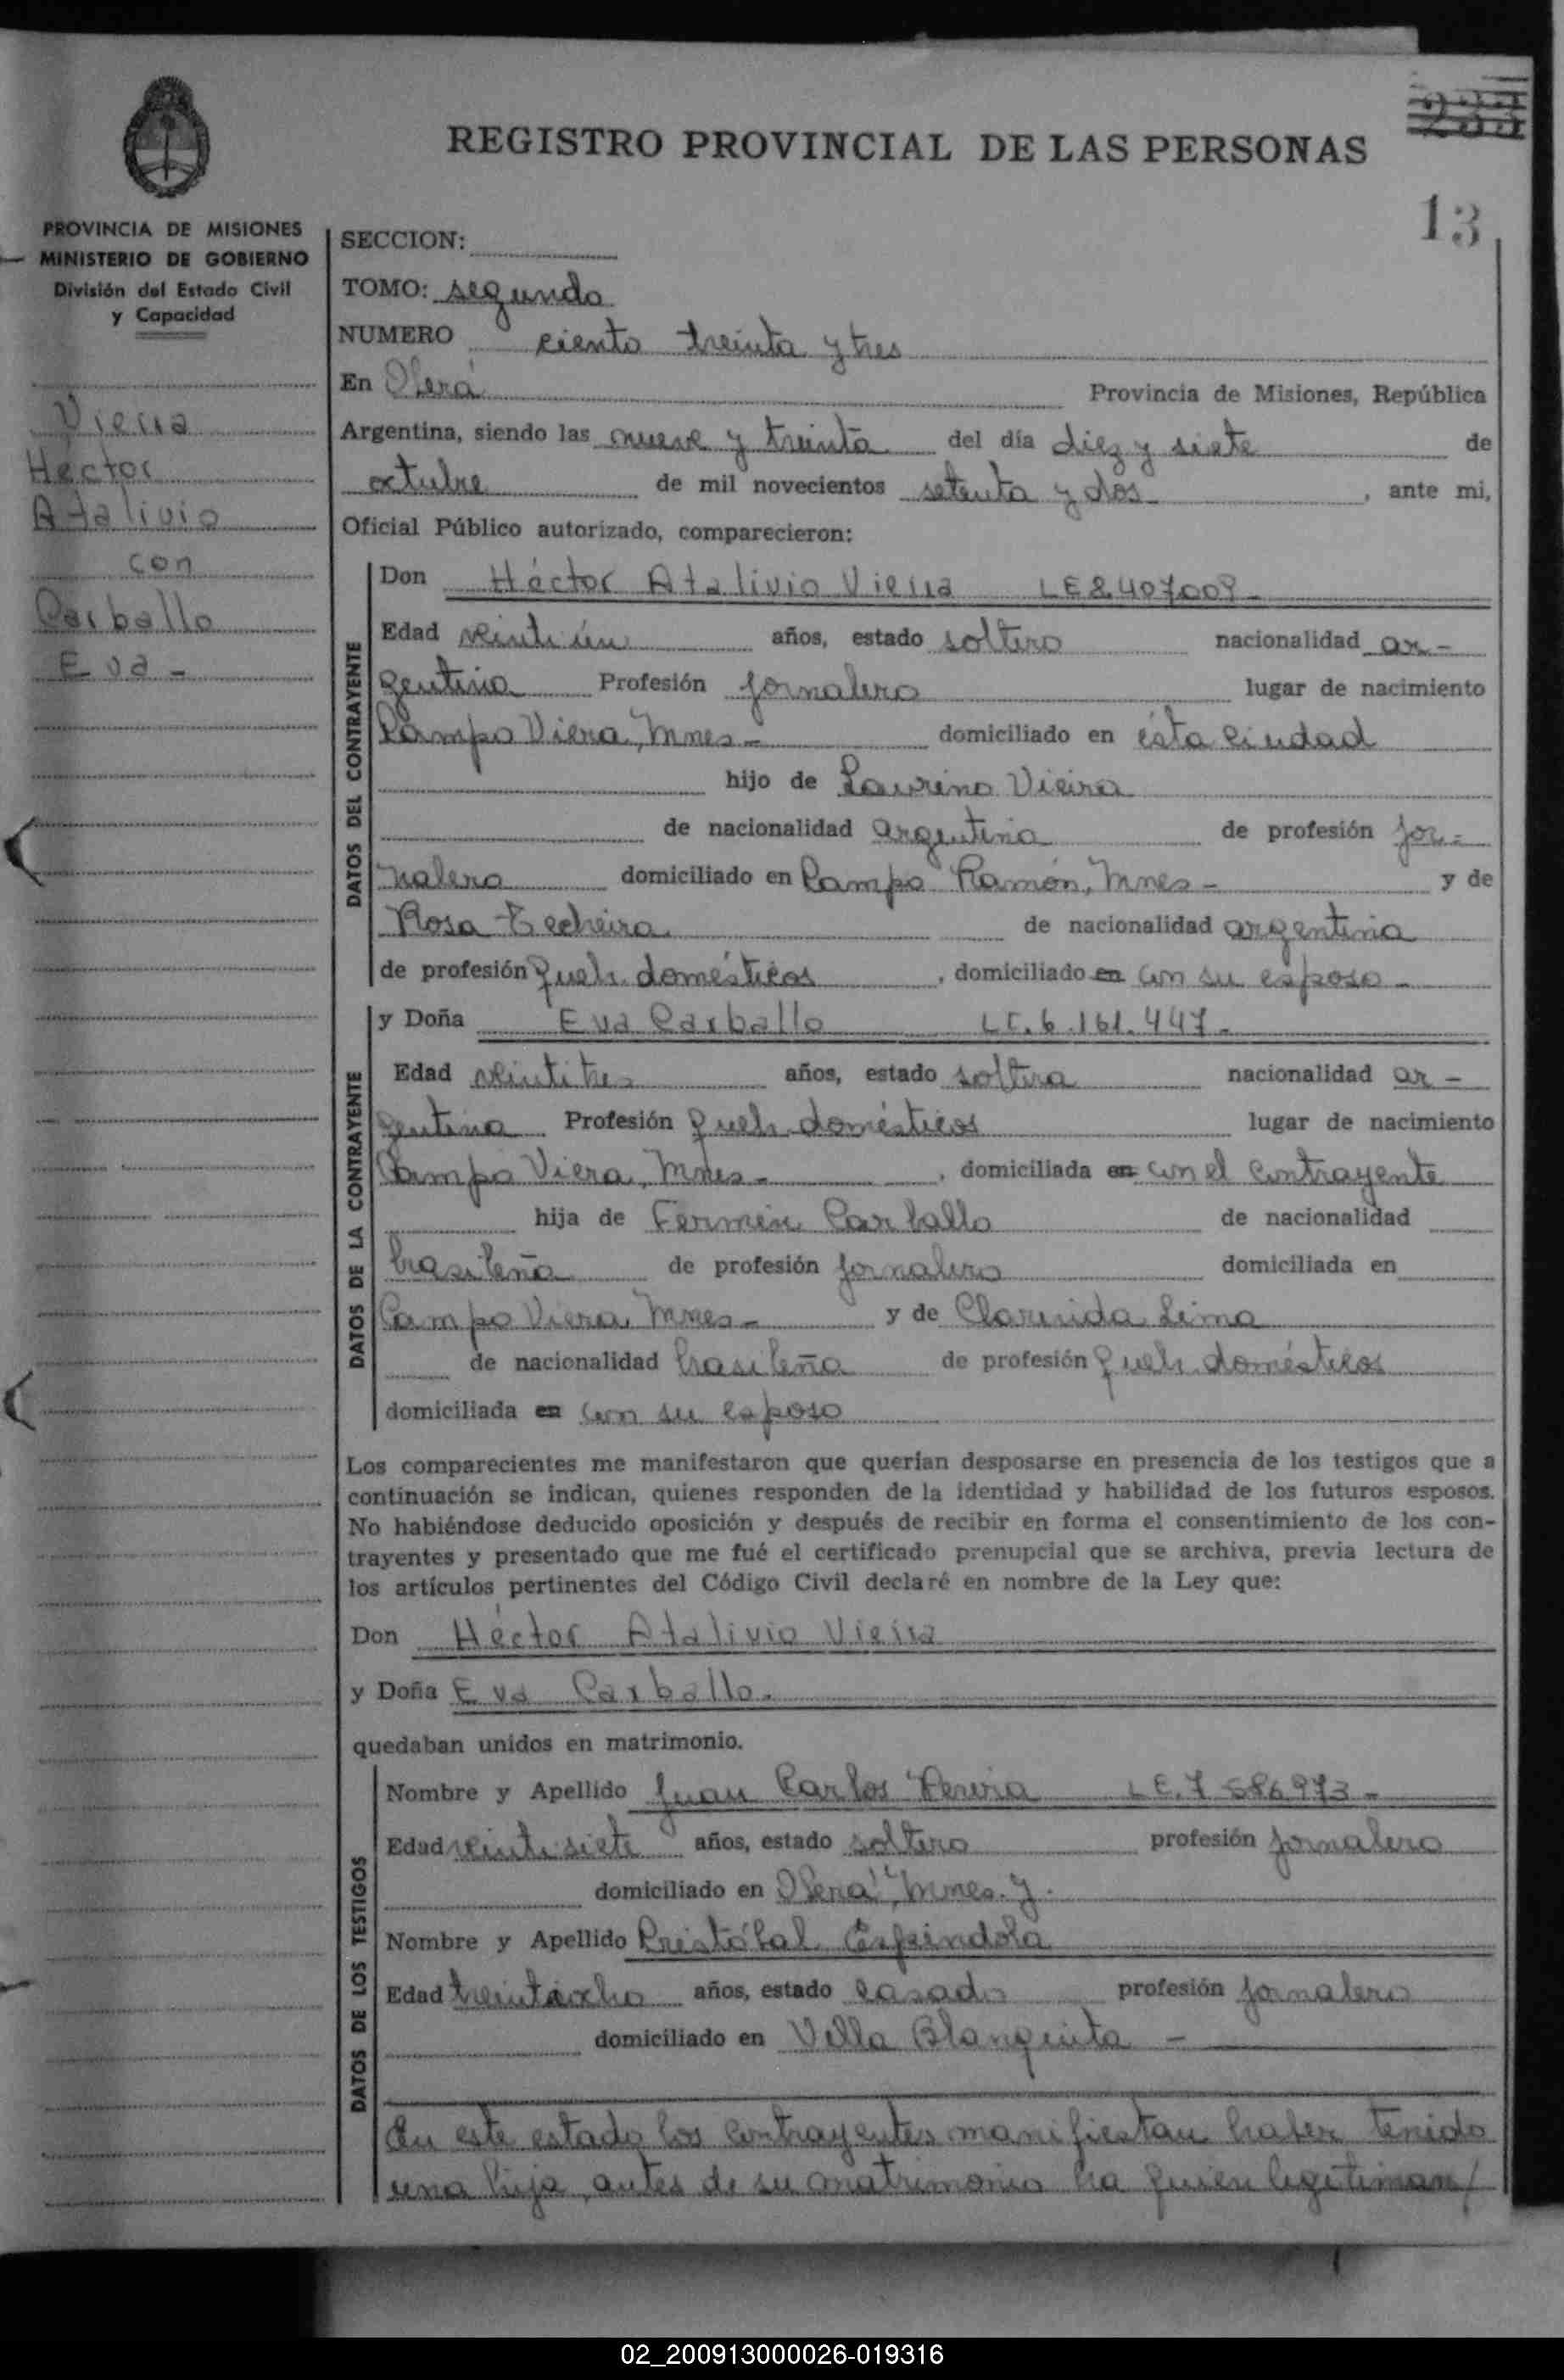 233
REGISTRO PROVINCIAL DE LAS PERSONAS
13
PROVINCIA DE MISIONES
MINISTERIO DE GOBIERNO
División del Estado Civil
y Capacidad
Vieira
Héctor
Atalivio
con
Carballo
Eva -
SECCION:
TOMO: segundo
NUMERO ciento treinta y tres
En Oberá Provincia de Misiones, República
Argentina, siendo las nueve y treinta del día diez y siete de
octubre de mil novecientos setenta y dos , ante mi,
Oficial Público autorizado, comparecieron:
DATOS DEL CONTRAYENTE
Don Héctor Atalivio Vieira LE 8.407.009-
Edad veintiún años, estado soltero nacionalidad ar-
gentina Profesión jornalero lugar de nacimiento
Campo Viera, Mnes- domiciliado en ésta ciudad
hijo de Laurino Vieira
de nacionalidad argentina de profesión jor-
nalero domiciliado en Campo Ramón, Mnes- y de
Rosa Techeira de nacionalidad argentina
de profesión queh. domésticos , domiciliado en con su esposo-
DATOS DE LA CONTRAYENTE
y Doña Eva Carballo LC. 6.161.447-
Edad veintitres años, estado soltera nacionalidad ar-
gentina Profesión queh. domésticos lugar de nacimiento
Campo Viera, Mnes- , domiciliada en con el contrayente
hija de Fermin Carballo de nacionalidad
brasileña de profesión jornalero domiciliada en
Campo Viera, Mnes- y de Clarinda Lima
de nacionalidad brasileña de profesión queh. domésticos
domiciliada en con su esposo
Los comparecientes me manifestaron que querían desposarse en presencia de los testigos que a
continuación se indican, quienes responden de la identidad y habilidad de los futuros esposos.
No habiéndose deducido oposición y después de recibir en forma el consentimiento de los con-
trayentes y presentado que me fué el certificado prenupcial que se archiva, previa lectura de
los artículos pertinentes del Código Civil declaré en nombre de la Ley que:
Don Héctor Atalivio Vieira
y Doña Eva Carballo.
quedaban unidos en matrimonio.
DATOS DE LOS TESTIGOS
Nombre y Apellido Juan Carlos Pereira LE. 7 586973-
Edad veintisiete años, estado soltero profesión jornalero
domiciliado en Oberá, Mnes. y.
Nombre y Apellido Cristóbal Espindola
Edad treintaocho años, estado casado profesión jornalero
domiciliado en Villa Blanquita -
En este estado los contrayentes manifiestan haber tenido
una hija, antes de su matrimonio ha quien legitiman/
02_200913000026-019316